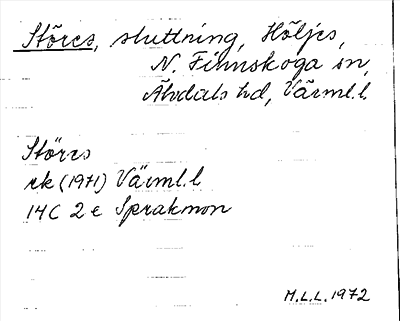 Störes, sluttning, Höljes,
N. Finnskoga sn,
Älvdals hd, Värml.l.
Störes
rk (1971) Värml.l
14C 2e Sprakmon
M.L.L. 1972